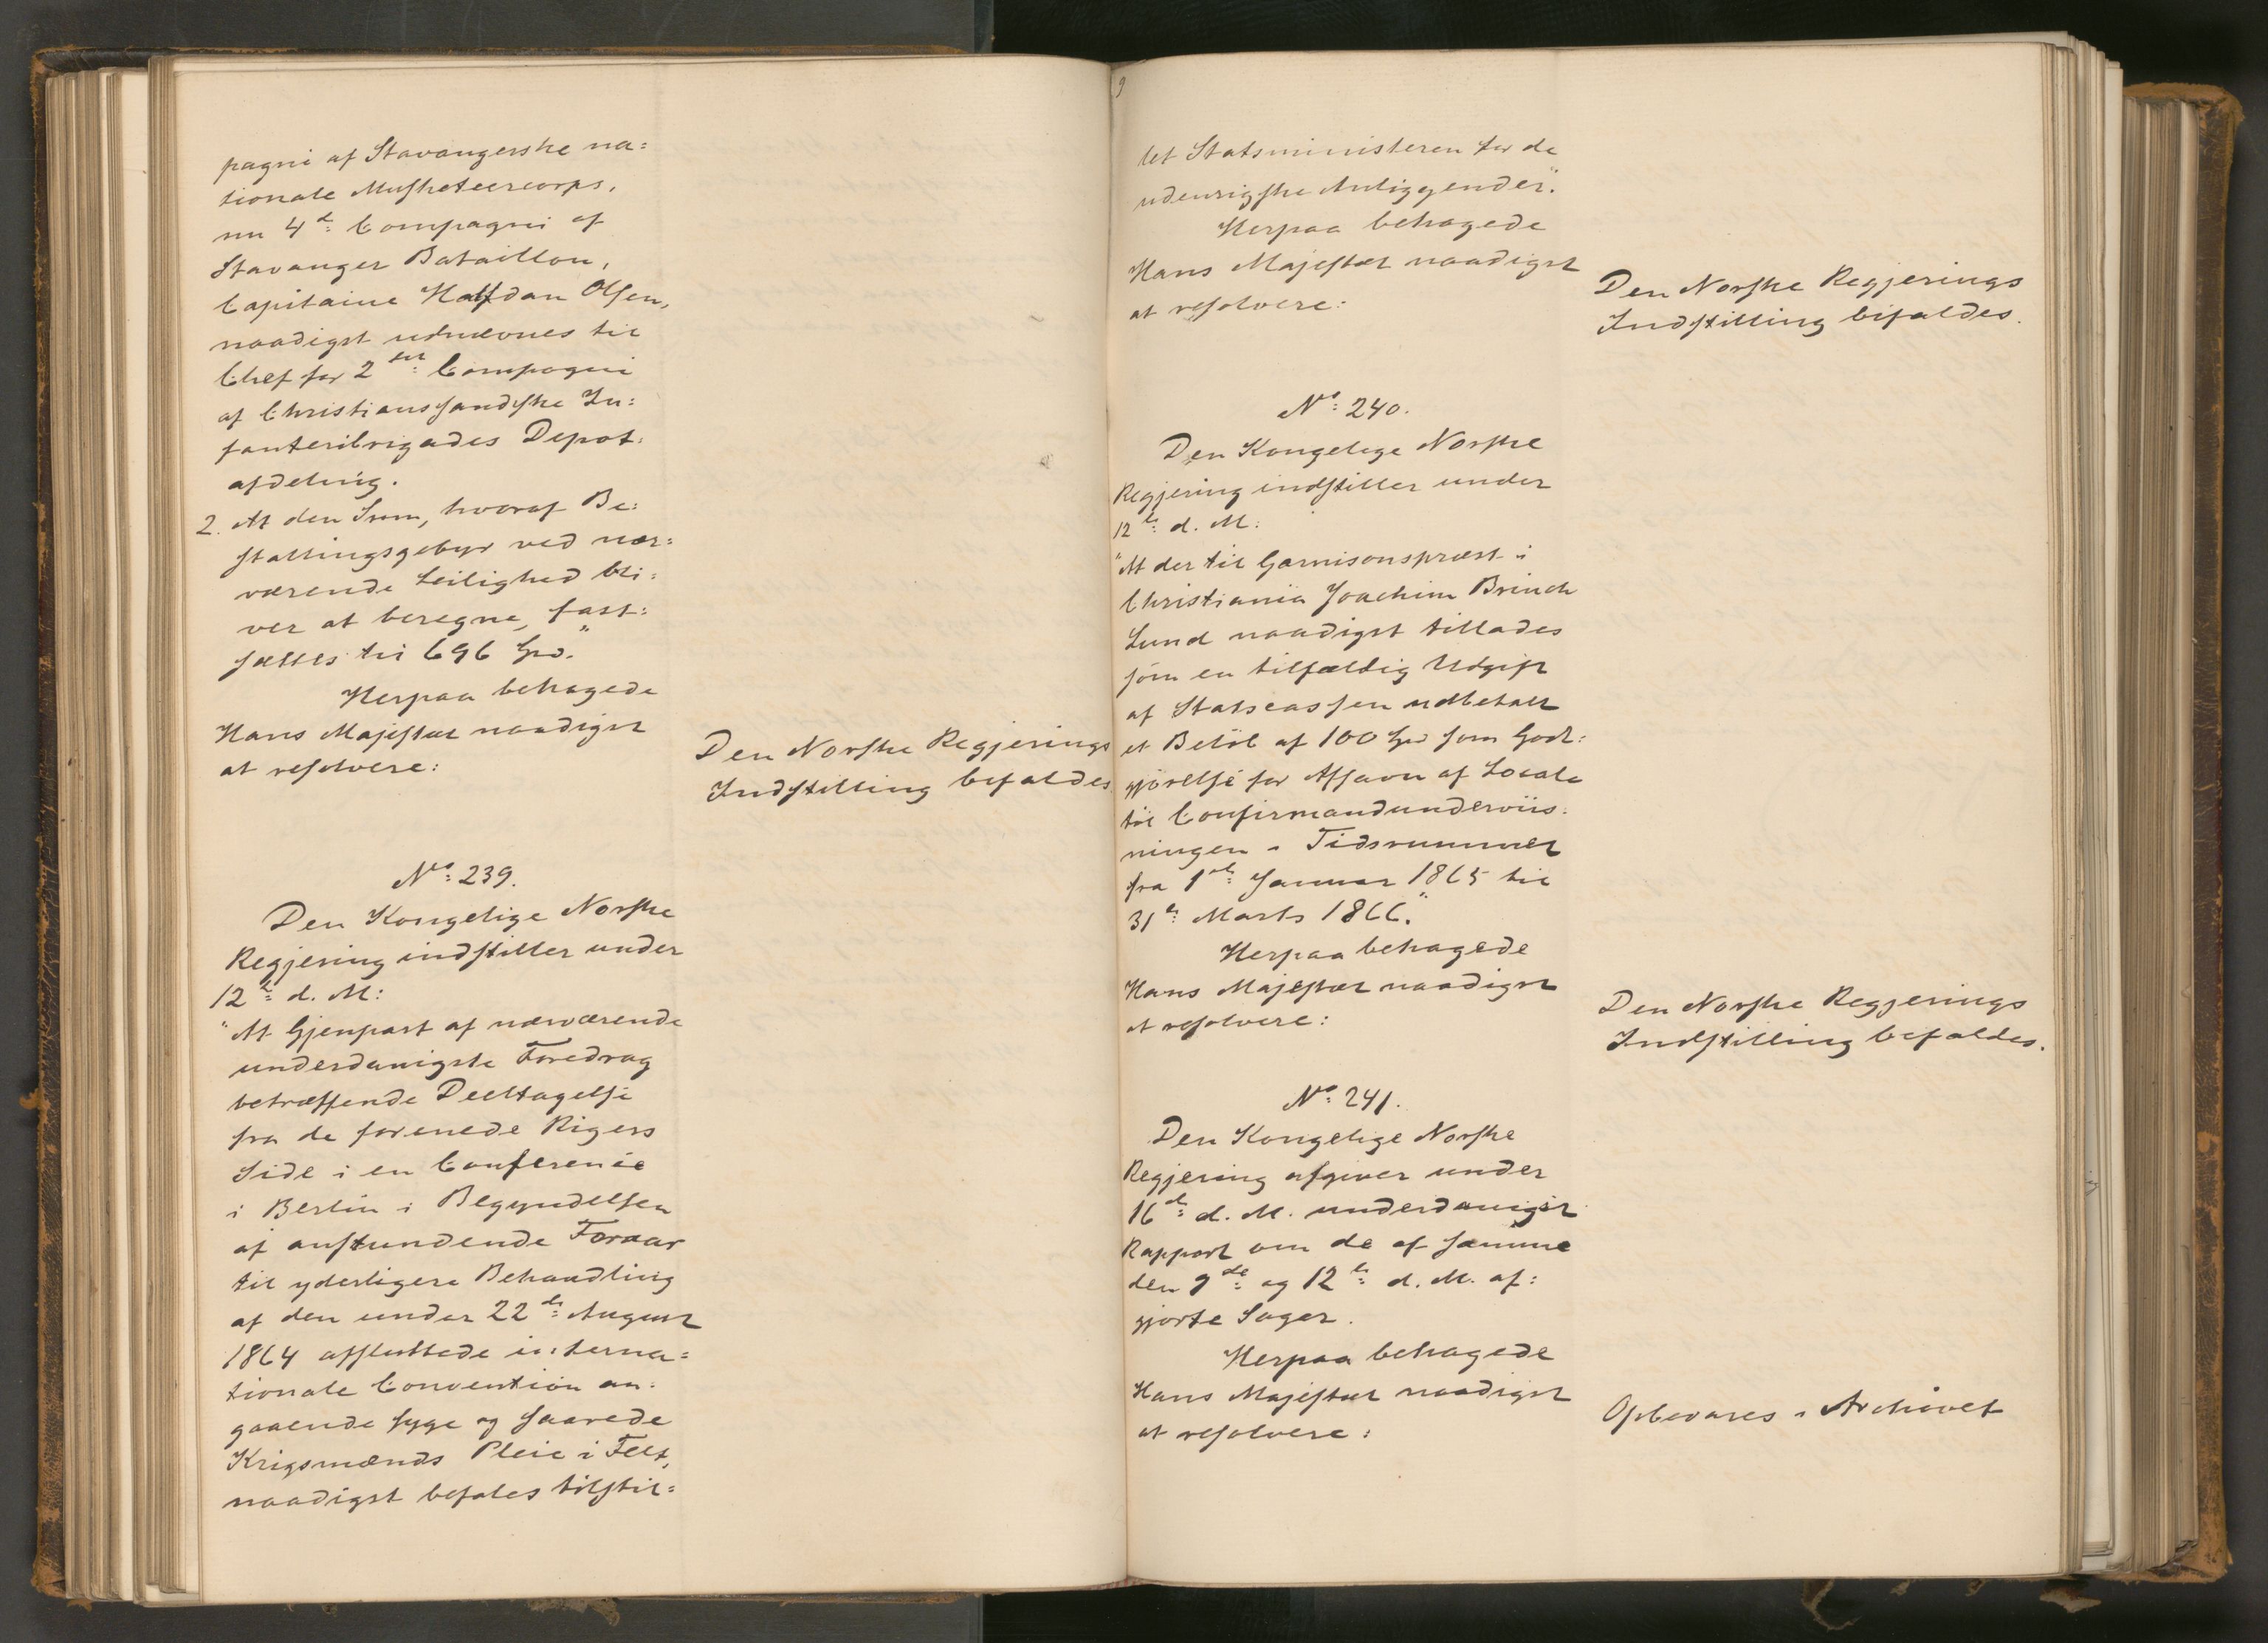 pagni af Stavangerske na=
tionale Musketeercorps,
nu 4de Compagni af
Stavanger Bataillon,
Capitaine Halfdan Olsen,
naadigst udnævnes til
Chef for 2det Compagni
af Christianssandske In=
fanteribrigades Depot=
afdeling.
2. At den Sum, hvoraf Be=
stallingsgebyr ved nær=
værende Leilighed bli=
ver at beregne, fast=
sættes til 696 Spd."
Herpaa behagede
Hans Majestæt naadigst
at resolvere:
Den Norske Regjerings
Indstilling bifaldes
No 239.
Den Kongelige Norske
Regjering indstiller under
12te d. M:
"At Gjenpart af nærværende
underdanigste Foredrag
betræffende Deeltagelse
fra de forenede Rigers
Side i en Conference
i Berlin i Begyndelsen
af anstundende Foraar
til yderligere Behandling
af den under 22de August
1864 afsluttede interna=
tionale Convention an=
gaaende syge og saarede
Krigsmænds Pleie i Felt,
naadigst befales tilstil=
9
let Statsministeren for de
udenrigske Anliggender."
Herpaa behagede
Hans Majestæt naadigst
at resolvere:
Den Norske Regjerings
Indstilling bifaldes.
No 240.
Den Kongelige Norske
Regjering indstiller under
12te d. M:
"At der til Garnisonspræst i
Christiania Joachim Brinch
Lund naadigst tillades
som en tilfældig Udgift
af Statscassen udbetalt
et Beløb af 100 Spd som Godt=
gjørelse for Afsavn af Locale
til Confirmandunderviis=
ningen i Tidsrummet
fra 1ste Januar 1865 til
31te Marts 1866."
Herpaa behagede
Hans Majestæt naadigst
at resolvere:
Den Norske Regjerings
Indstilling bifaldes.
No 241.
Den Kongelige Norske
Regjering afgiver under
16de d. M. underdanigst
Rapport om de af samme
den 9de og 12te d. M. af=
gjorte Sager.
Herpaa behagede
Hans Majestæt naadigst
at resolvere:
Opbevares i Archivet